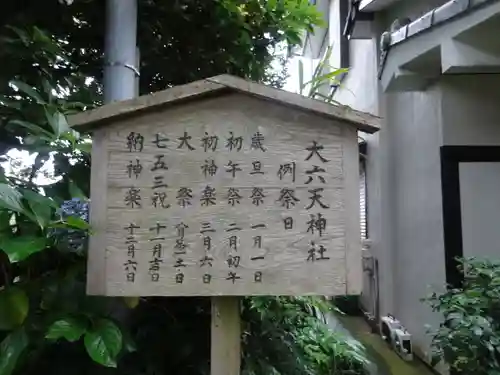 大六天神社
例祭日
歳旦祭 一月一日
初午祭 二月初午
初神楽 三月六日
大祭
七五三祝 十一月吉日
納神楽 十二月六日